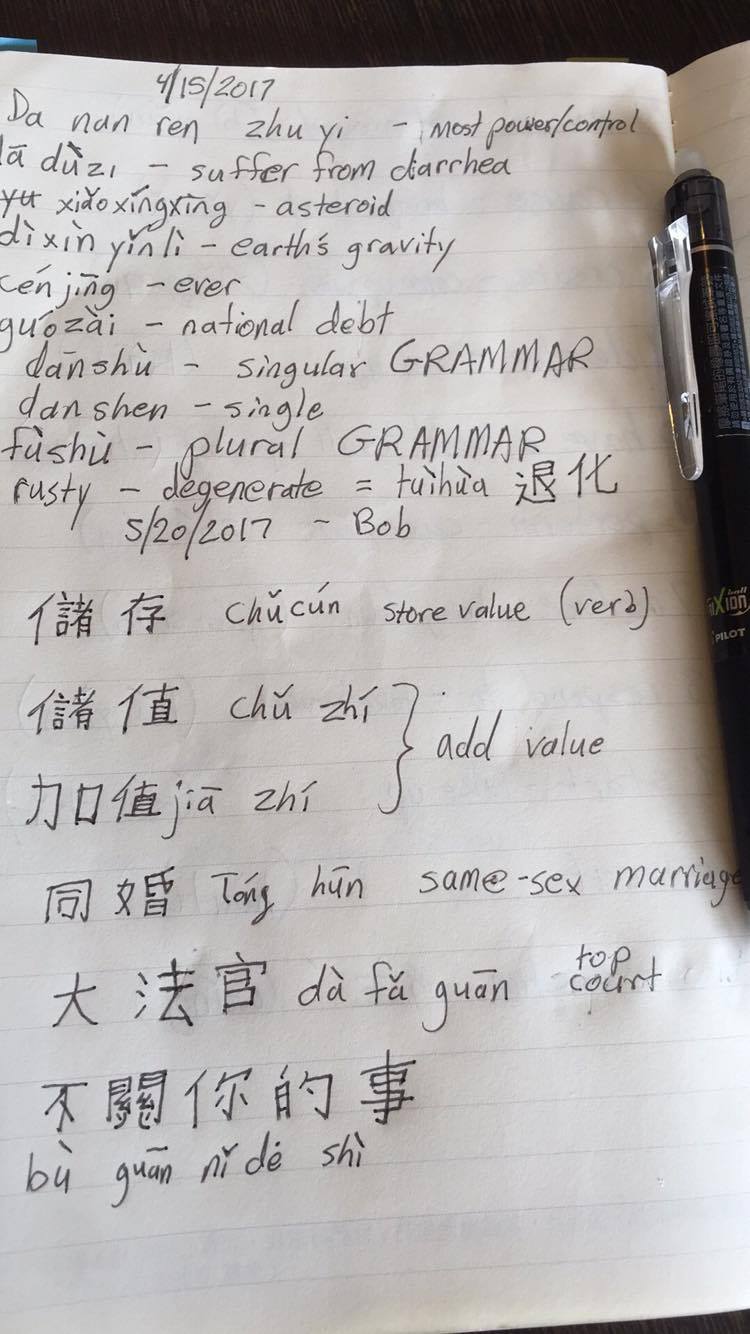 4/15/2017
Da nan ren zhu yi - most power/control
lā dùzı - suffer from diarrhea
xiǎoxíngxīng - asteroid
dìxìn yǐnlì - earth's gravity
cénjīng - ever
guózài - national debt
dānshù - singular GRAMMAR
dan shen - single
fùshù - plural GRAMMAR
rusty - degenerate = tuìhùa 退化
5/20/2017 - Bob
儲存 chǔcún store value (verb)
儲值 chǔ zhí
加值 jiā zhí } add value
同婚 Tóng hūn same-sex marriage
大法官 dà fǎ guān top court
不關你的事
bù guān nǐ dė shì
XION
PILOT